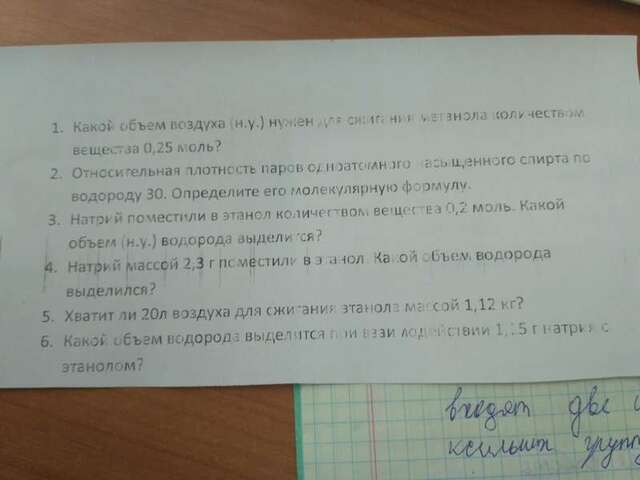 1. Какой объем воздуха (н.у.) нужен для сжигания метанола количеством
вещества 0,25 моль?
2. Относительная плотность паров одноатомного насыщенного спирта по
водороду 30. Определите его молекулярную формулу.
3. Натрий поместили в этанол количеством вещества 0,2 моль. Какой
объем (н.у.) водорода выделится?
4. Натрий массой 2,3 г поместили в этанол. Какой объем водорода
выделился?
5. Хватит ли 20л воздуха для сжигания этанола массой 1,12 кг?
6. Какой объем водорода выделится при взаимодействии 1,15 г натрия с
этанолом?
входят две
ксильных групп